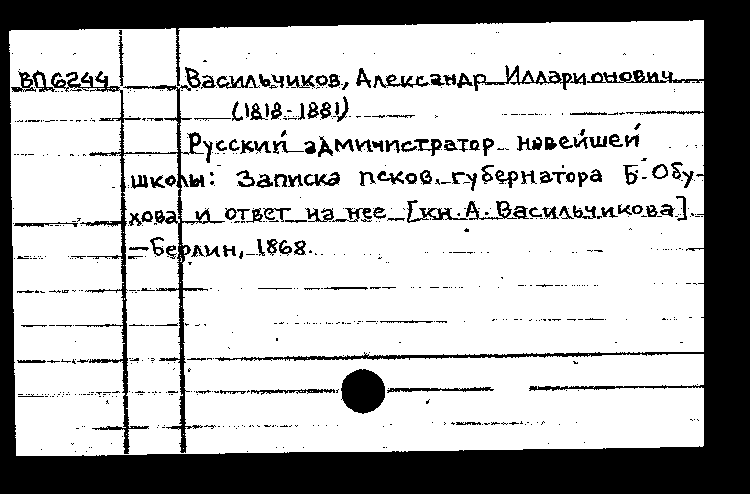 ВП6244 Васильчиков, Александр Илларионович
(1818-1881)
Русский администратор новейшей
школы: Записка псков. губернатора Б. Обу-
хова и ответ на нее [кн. А. Васильчикова]
— Берлин, 1868.